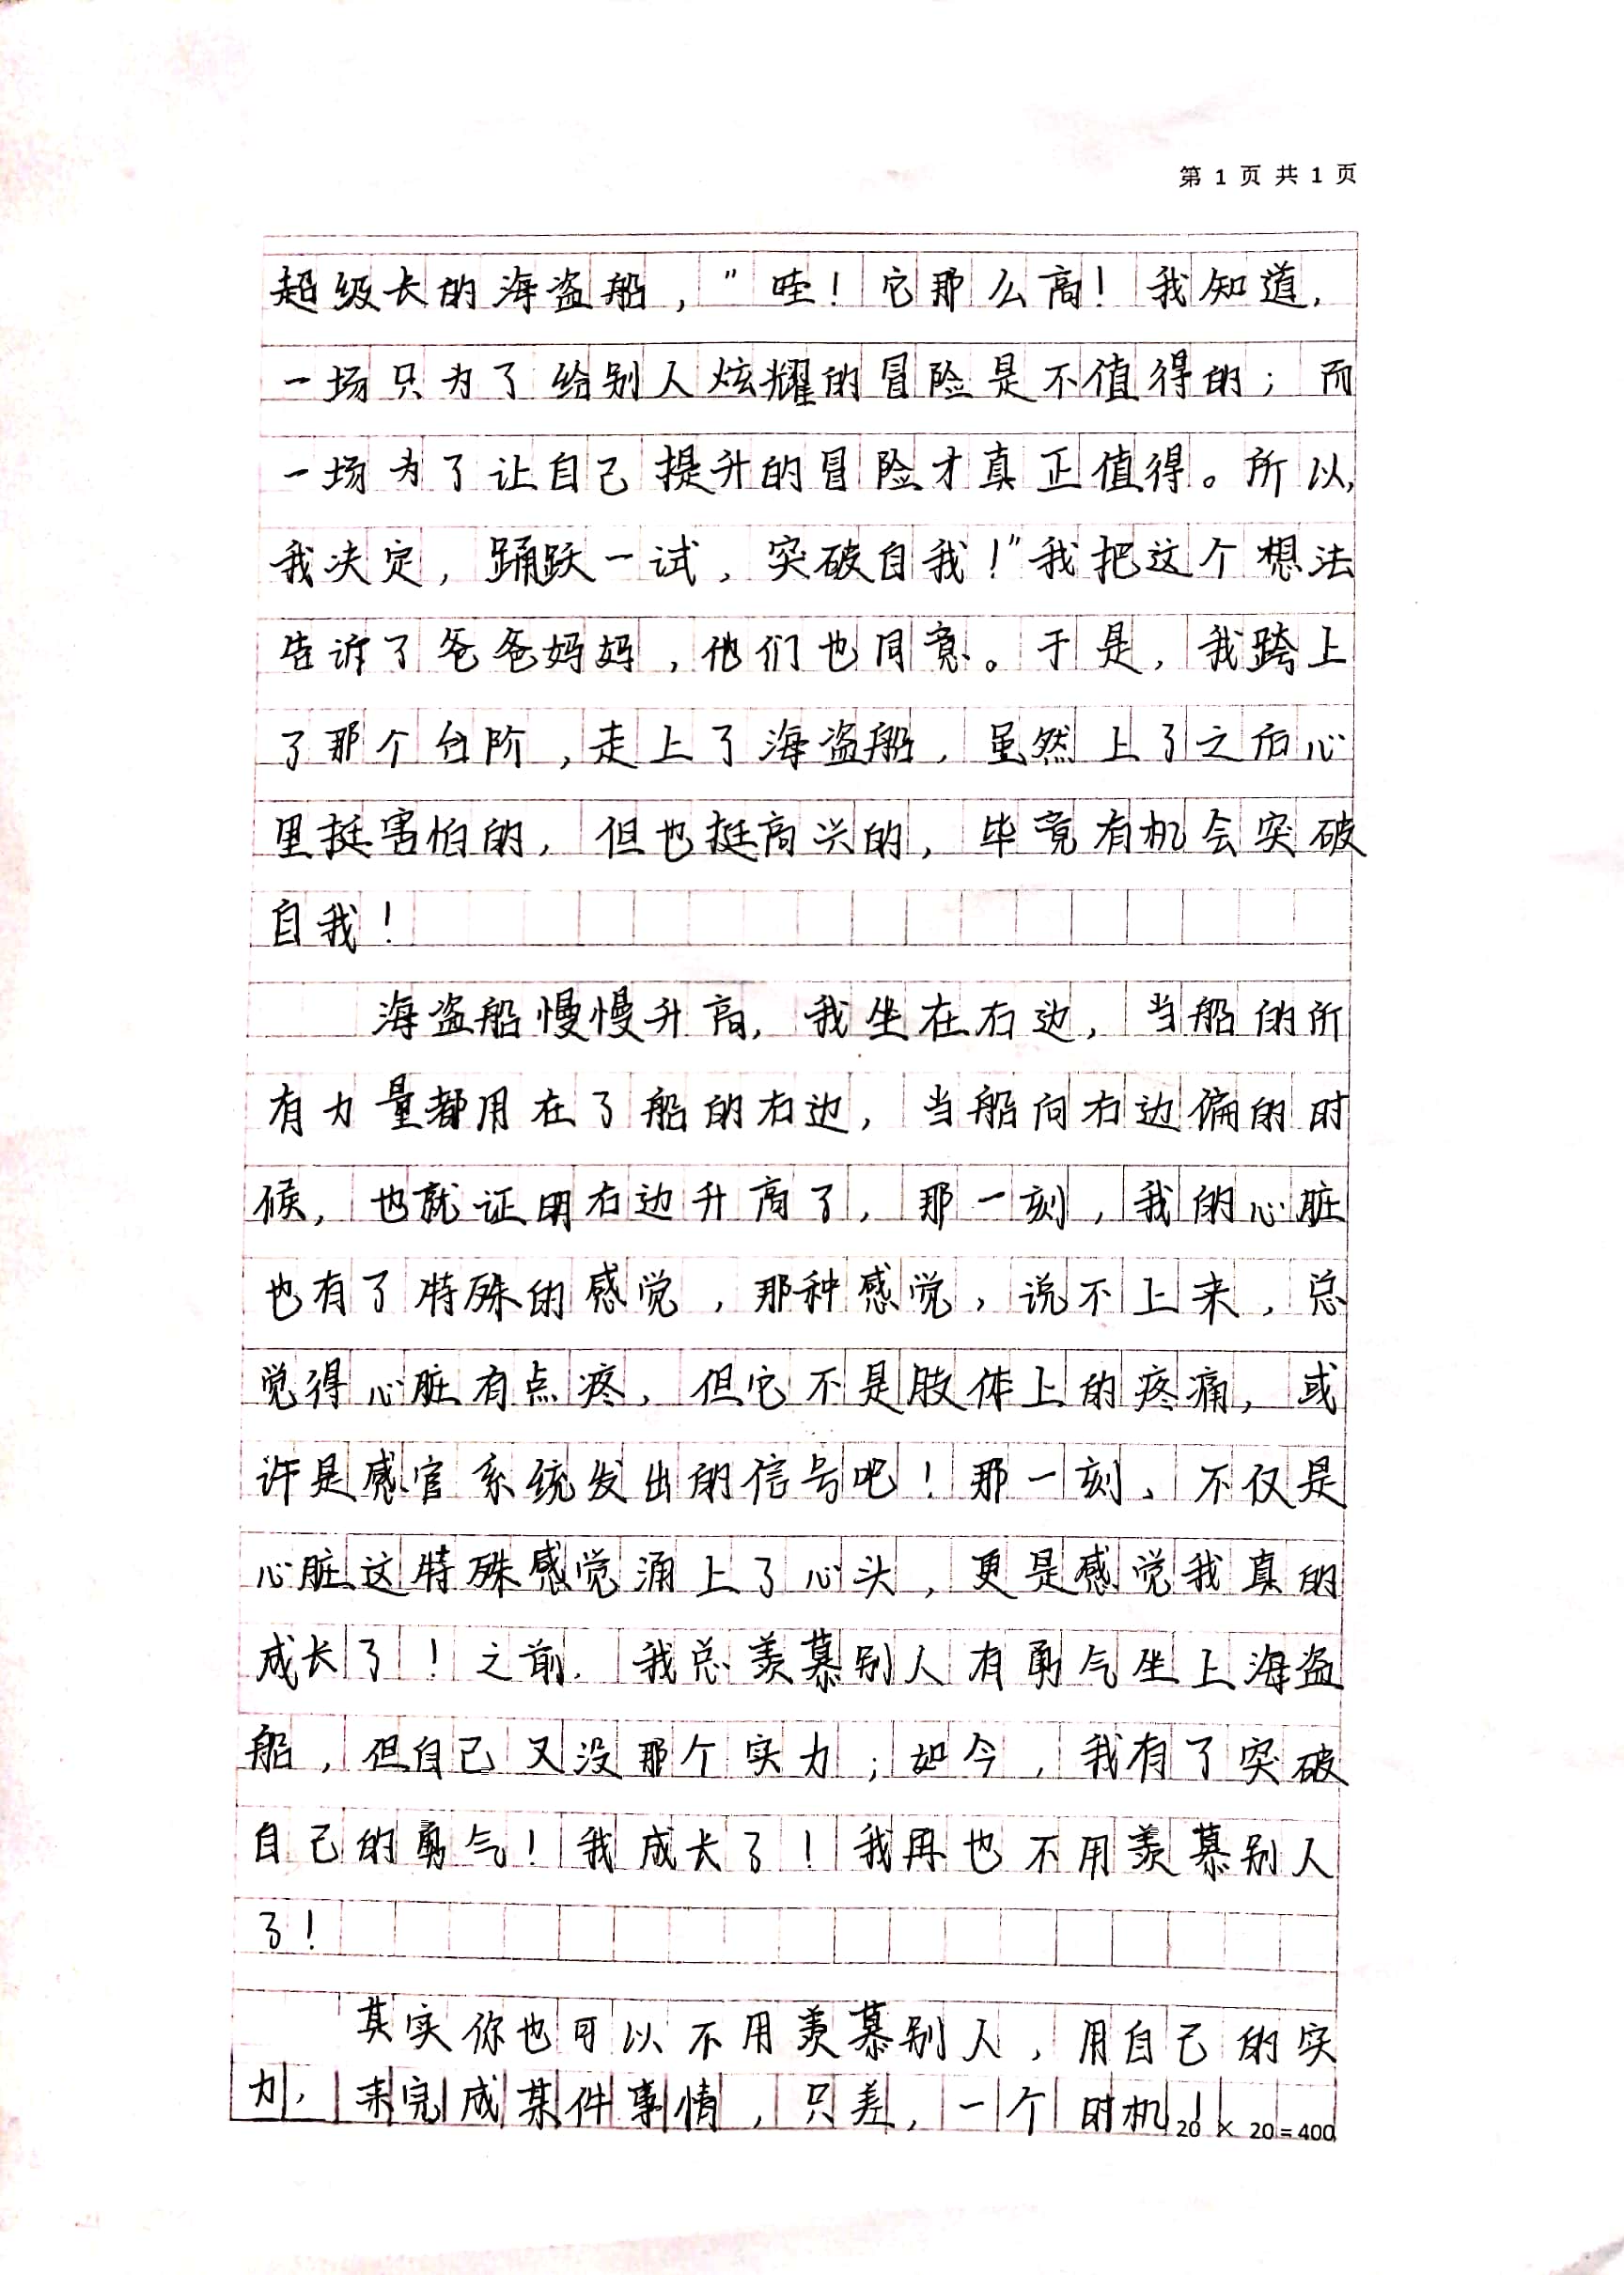 第 1 页 共 1 页
超级长的海盗船，"哇！它那么高！我知道，
一场只为了给别人炫耀的冒险是不值得的；而
一场为了让自己提升的冒险才真正值得。所以，
我决定，踊跃一试，突破自我！"我把这个想法
告诉了爸爸妈妈，他们也同意。于是，我跨上
了那个台阶，走上了海盗船，虽然上了之后心
里挺害怕的，但也挺高兴的，毕竟有机会突破
自我！
海盗船慢慢升高，我坐在右边，当船的所
有力量都用在了船的右边，当船向右边偏的时
候，也就证明右边升高了，那一刻，我的心脏
也有了特殊的感觉，那种感觉，说不上来，总
觉得心脏有点疼，但它不是肢体上的疼痛，或
许是感官系统发出的信号吧！那一刻、不仅是
心脏这特殊感觉涌上了心头，更是感觉我真的
成长了！之前，我总羡慕别人有勇气坐上海盗
船，但自己又没那个实力；如今，我有了突破
自己的勇气！我成长了！我再也不用羡慕别人
了！
其实你也可以不用羡慕别人，用自己的实
力，来完成某件事情，只差，一个时机！
20 × 20=400